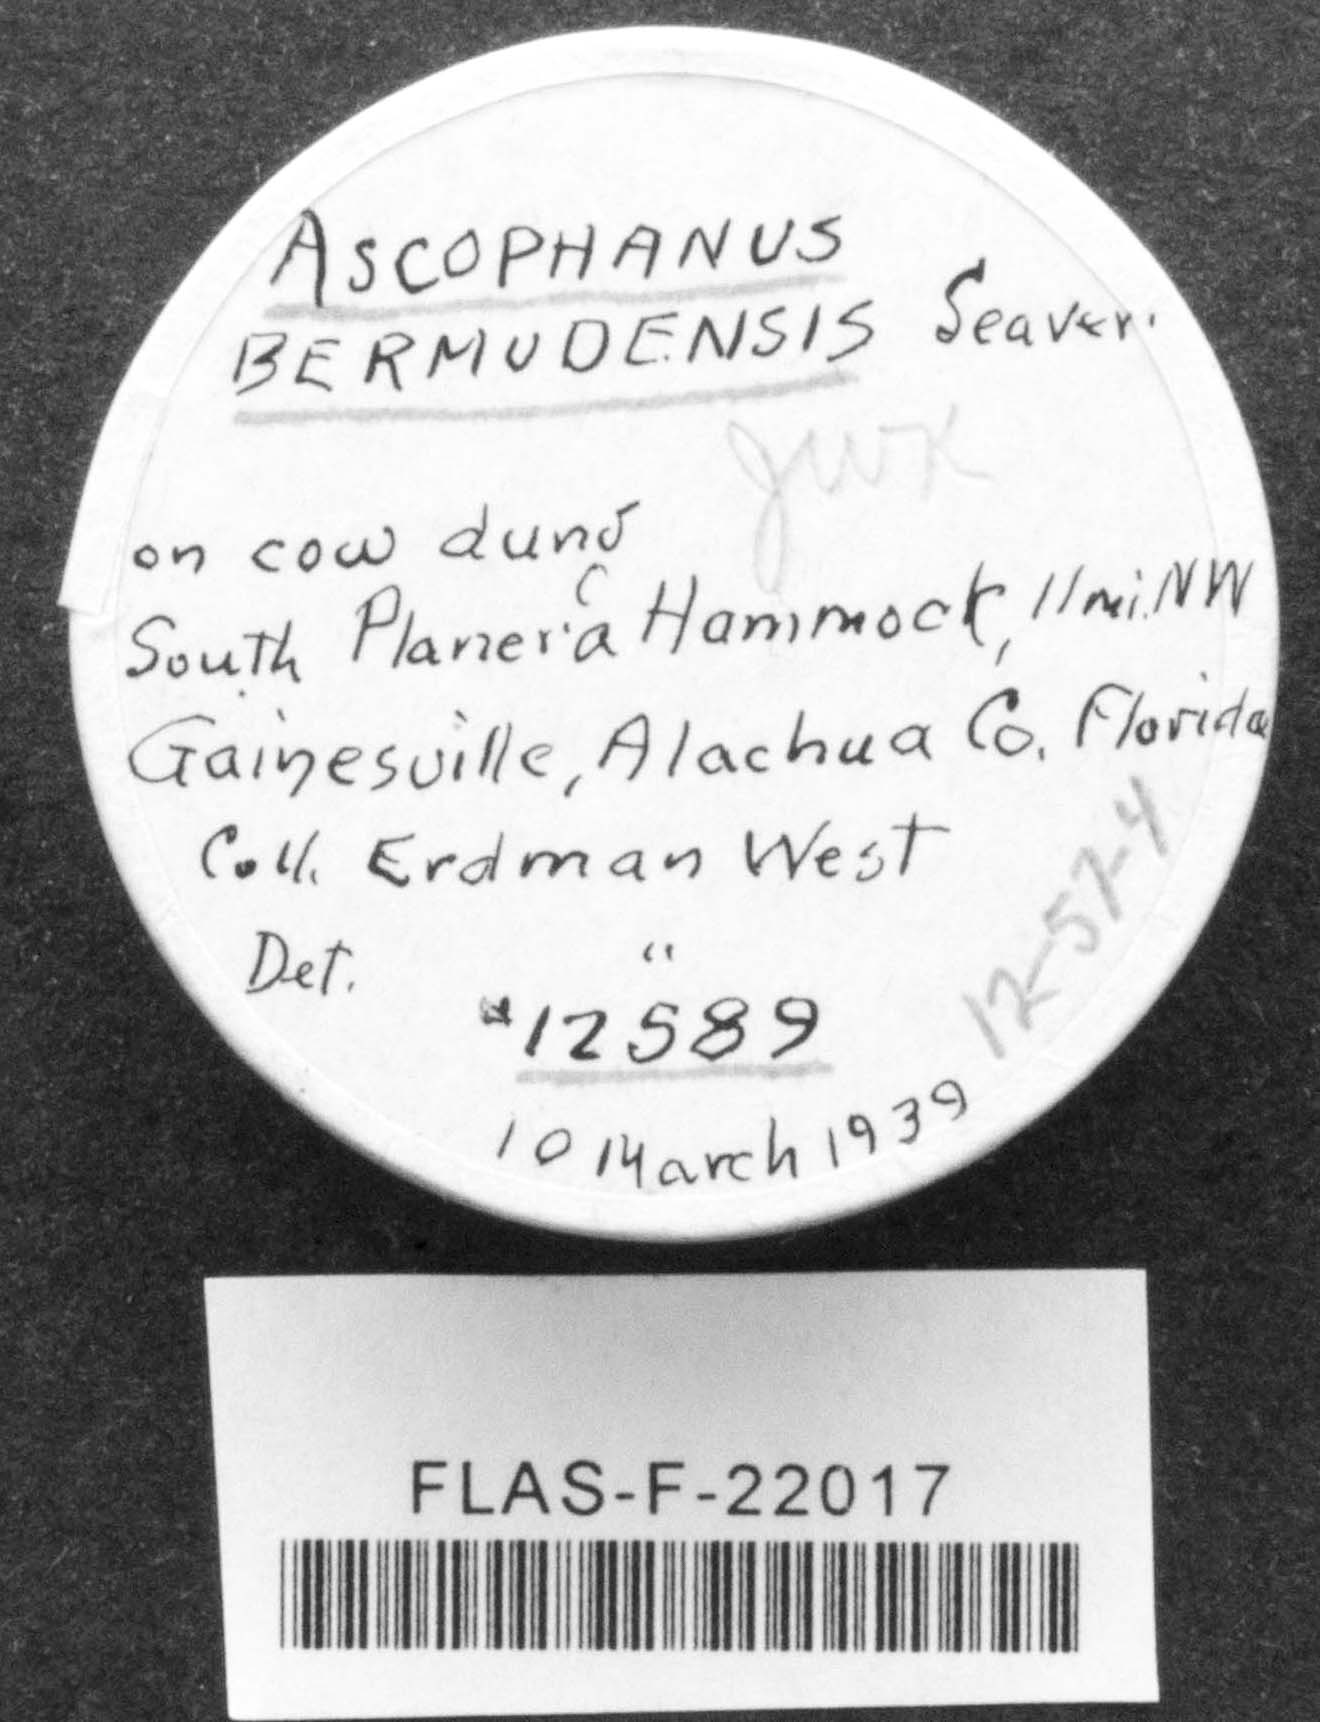 ASCOPHANUS
BERMUDENSIS Seaver.
JWK
on cow dung
South Planera Hammock, 11 mi. NW
Gainesville, Alachua Co. Florida
Coll. Erdman West
Det. "
#12589
12-57-4
10 March 1939
FLAS-F-22017